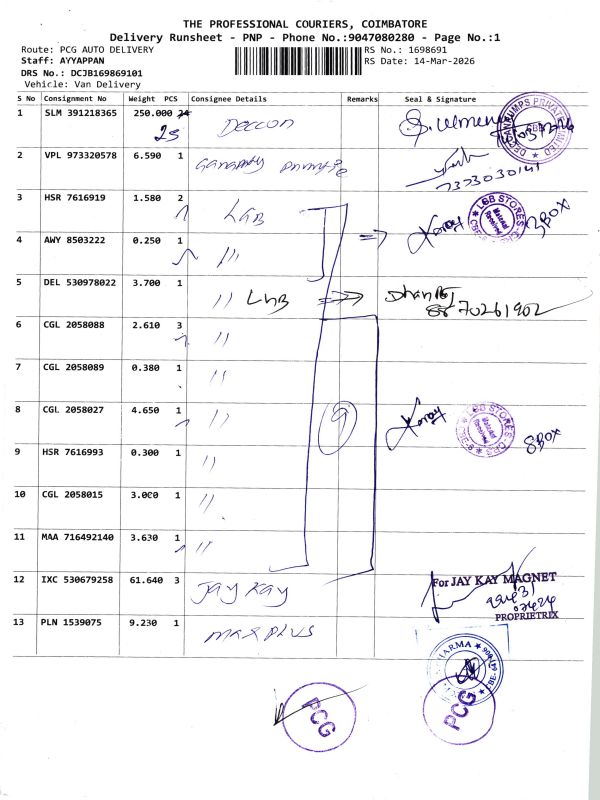 THE PROFESSIONAL COURIERS, COIMBATORE
Delivery Runsheet - PNP - Phone No.:9047080280 - Page No.:1
Route: PCG AUTO DELIVERY RS No.: 1698691
Staff: AYYAPPAN RS Date: 14-Mar-2026
DRS No.: DCJB169869101
Vehicle: Van Delivery
S No Consignment No Weight PCS Consignee Details Remarks Seal & Signature
1 SLM 391218365 250.000 Deccon
25
2 VPL 973320578 6.590 1
7373030141
3 HSR 7616919 1.580 2 LGB LGB STORES Material Received 3BOX
4 AWY 8503222 0.250 1 "
5 DEL 530978022 3.700 1 " LGB
8870261902
6 CGL 2058088 2.610 3 "
7 CGL 2058089 0.380 1 "
8 CGL 2058027 4.650 1 " 9 LGB STORES Material Received 8BOX
9 HSR 7616993 0.300 1 "
10 CGL 2058015 3.000 1 "
11 MAA 716492140 3.630 1 "
12 IXC 530679258 61.640 3 Jay Kay For JAY KAY MAGNET
PROPRIETRIX
13 PLN 1539075 9.230 1 max plus
PCG PCG